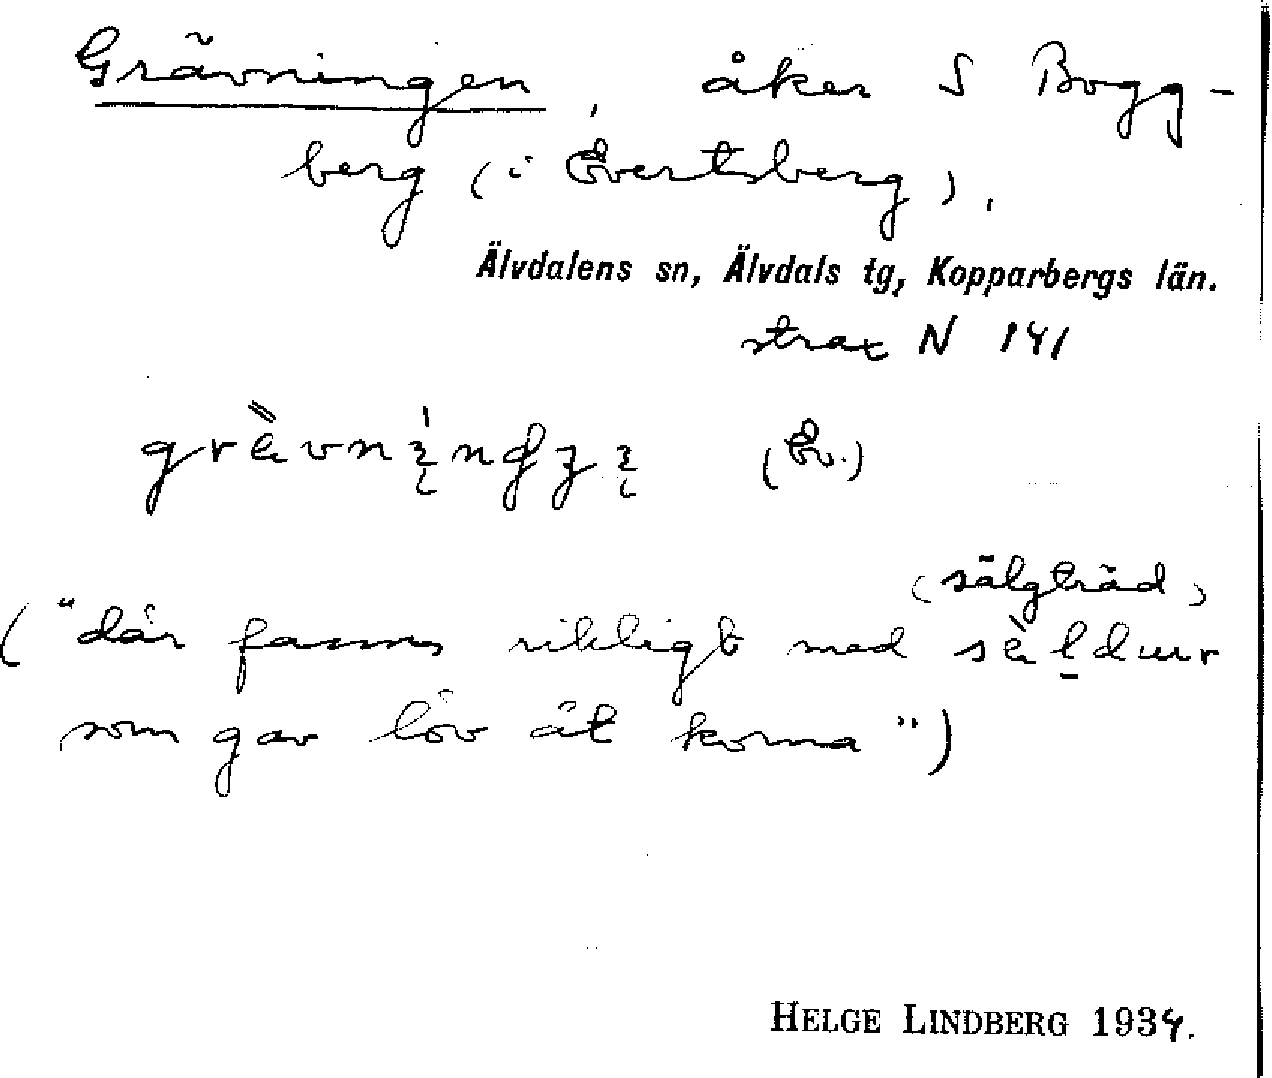 Grävningen, åker S Bogg-
berg (i Evertsberg).
Älvdalens sn, Älvdals tg, Kopparbergs län.
strax N 141
(Ev.)
(sälgträd)
("där fanns rikligt med
som gav löv åt korna")
HELGE LINDBERG 1934.